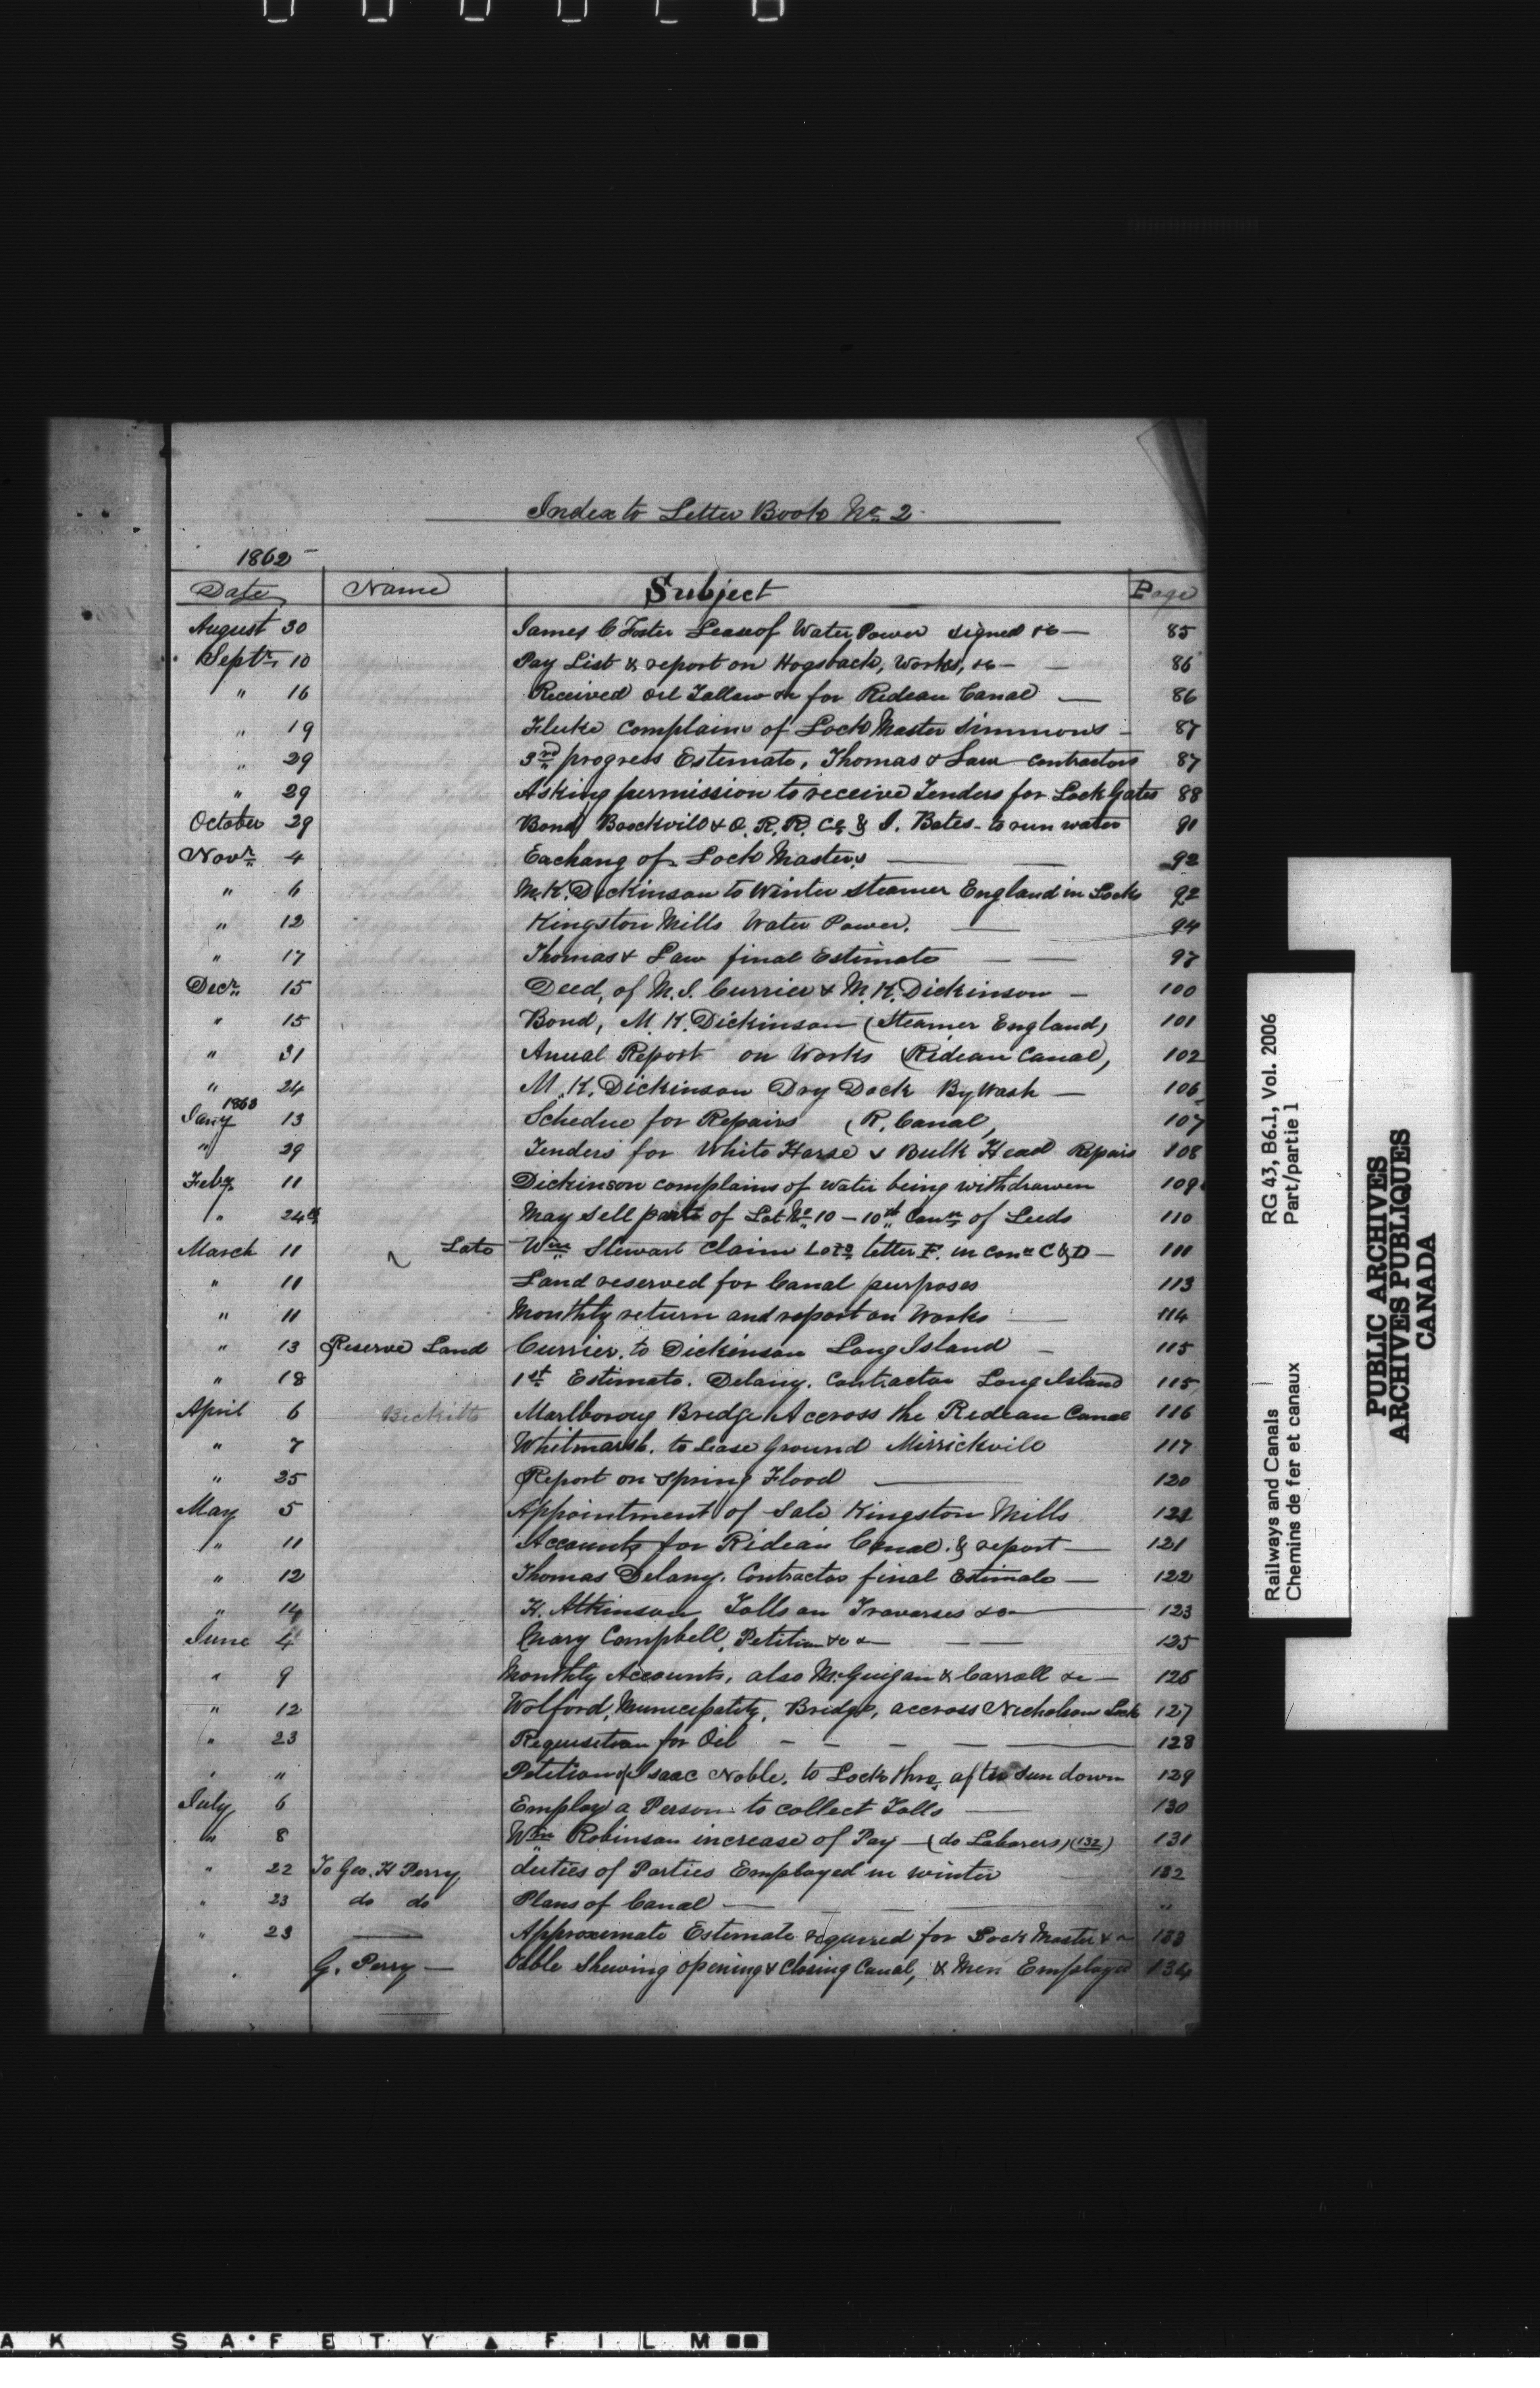 Index to Letter Book No. 2
1862
Date Name Subject Page
August 30 James C Foster Lease of Water Power signed &c — 85
Septr. 10 Pay List & report on Hogsback, Works, &c — 86
" 16 Received Oil Tallow &c for Rideau Canal — 86
" 19 Fluke complains of Lock Master Simmons — 87
" 29 3rd progress Estimate, Thomas & Law contractors 87
" 29 Asking permission to receive Tenders for Lock Gates 88
October 29 Bond Brockvill & O. R. R. Co. & I. Bates - to run water 91
Novr. 4 Exchang of Lock Masters — 92
" 6 M. K. Dickinson to Winter Steamer England in Locks 92
" 12 Kingston Mills Water Power. — 94
" 17 Thomas & Law final Estimate — 97
Decr. 15 Deed, of M. I. Currier & M. K. Dickinson — 100
" 15 Bond, M. K. Dickinson (Steamer England) 101
" 31 Anual Report on Works (Rideau Canal) 102
" 24 M. K. Dickinson Dry Dock By Wash — 106
1863
Jany 13 Schedue for Repairs (R. Canal) 107
" 29 Tenders for White Horse & Bulk Head Repairs 108
Feby. 11 Dickinson complains of water being withdrawen 109
" 24th May sell part of Lot No. 10 - 10th Con. of Leeds 110
March 11 Late Wm Stewart Claim Lots letter F. in Con. C & D — 111
" 11 Land reserved for Canal purposes 113
" 11 Monthly return and report on Works — 114
" 13 Reserve Land Currier. to Dickinson Long Island — 115
" 18 1st Estimate. Delany. Contractor Long Island 115
April 6 Becketts Marlboroug Bridge Accross the Rideau Canal 116
" 7 Whitmarsh. to Lease Ground Mirrickvill 117
" 25 Report on Spring Flood — 120
May 5 Appointment of Sale Kingston Mills 121
" 11 Accounts for Rideau Canal. & report — 121
" 12 Thomas Delany. Contractor final Estimate — 122
" 14 H. Atkinson Tolls on Traverses &c — 123
June 4 Mary Campbell, Petition &c &c — 125
" 9 Monthly Accounts, also McGuigan & Carroll &c — 126
" 12 Wolford, Municipality, Bridge, accross Nicholsons Lock 127
" 23 Requisition for Oil — 128
" " Petition of Isaac Noble. to Lock thro, after Sun down 129
July 6 Employ a Person to collect Tolls — 130
" 8 Wm Robinson increase of Pay — (do Laborers) (132) 131
" 22 To Geo. H Perry duties of Parties Employed in winter 132
" 23 do do Plans of Canal — "
" 23 — Approximate Estimate required for Lock Master &c 133
G. Perry — Table Shewing opening & Closing Canal, & Men Employed 134
Railways and Canals RG 43, B6.1, Vol. 2006
Chemins de fer et canaux Part/partie 1
PUBLIC ARCHIVES
ARCHIVES PUBLIQUES
CANADA
A K SAFETY ▲ FILM